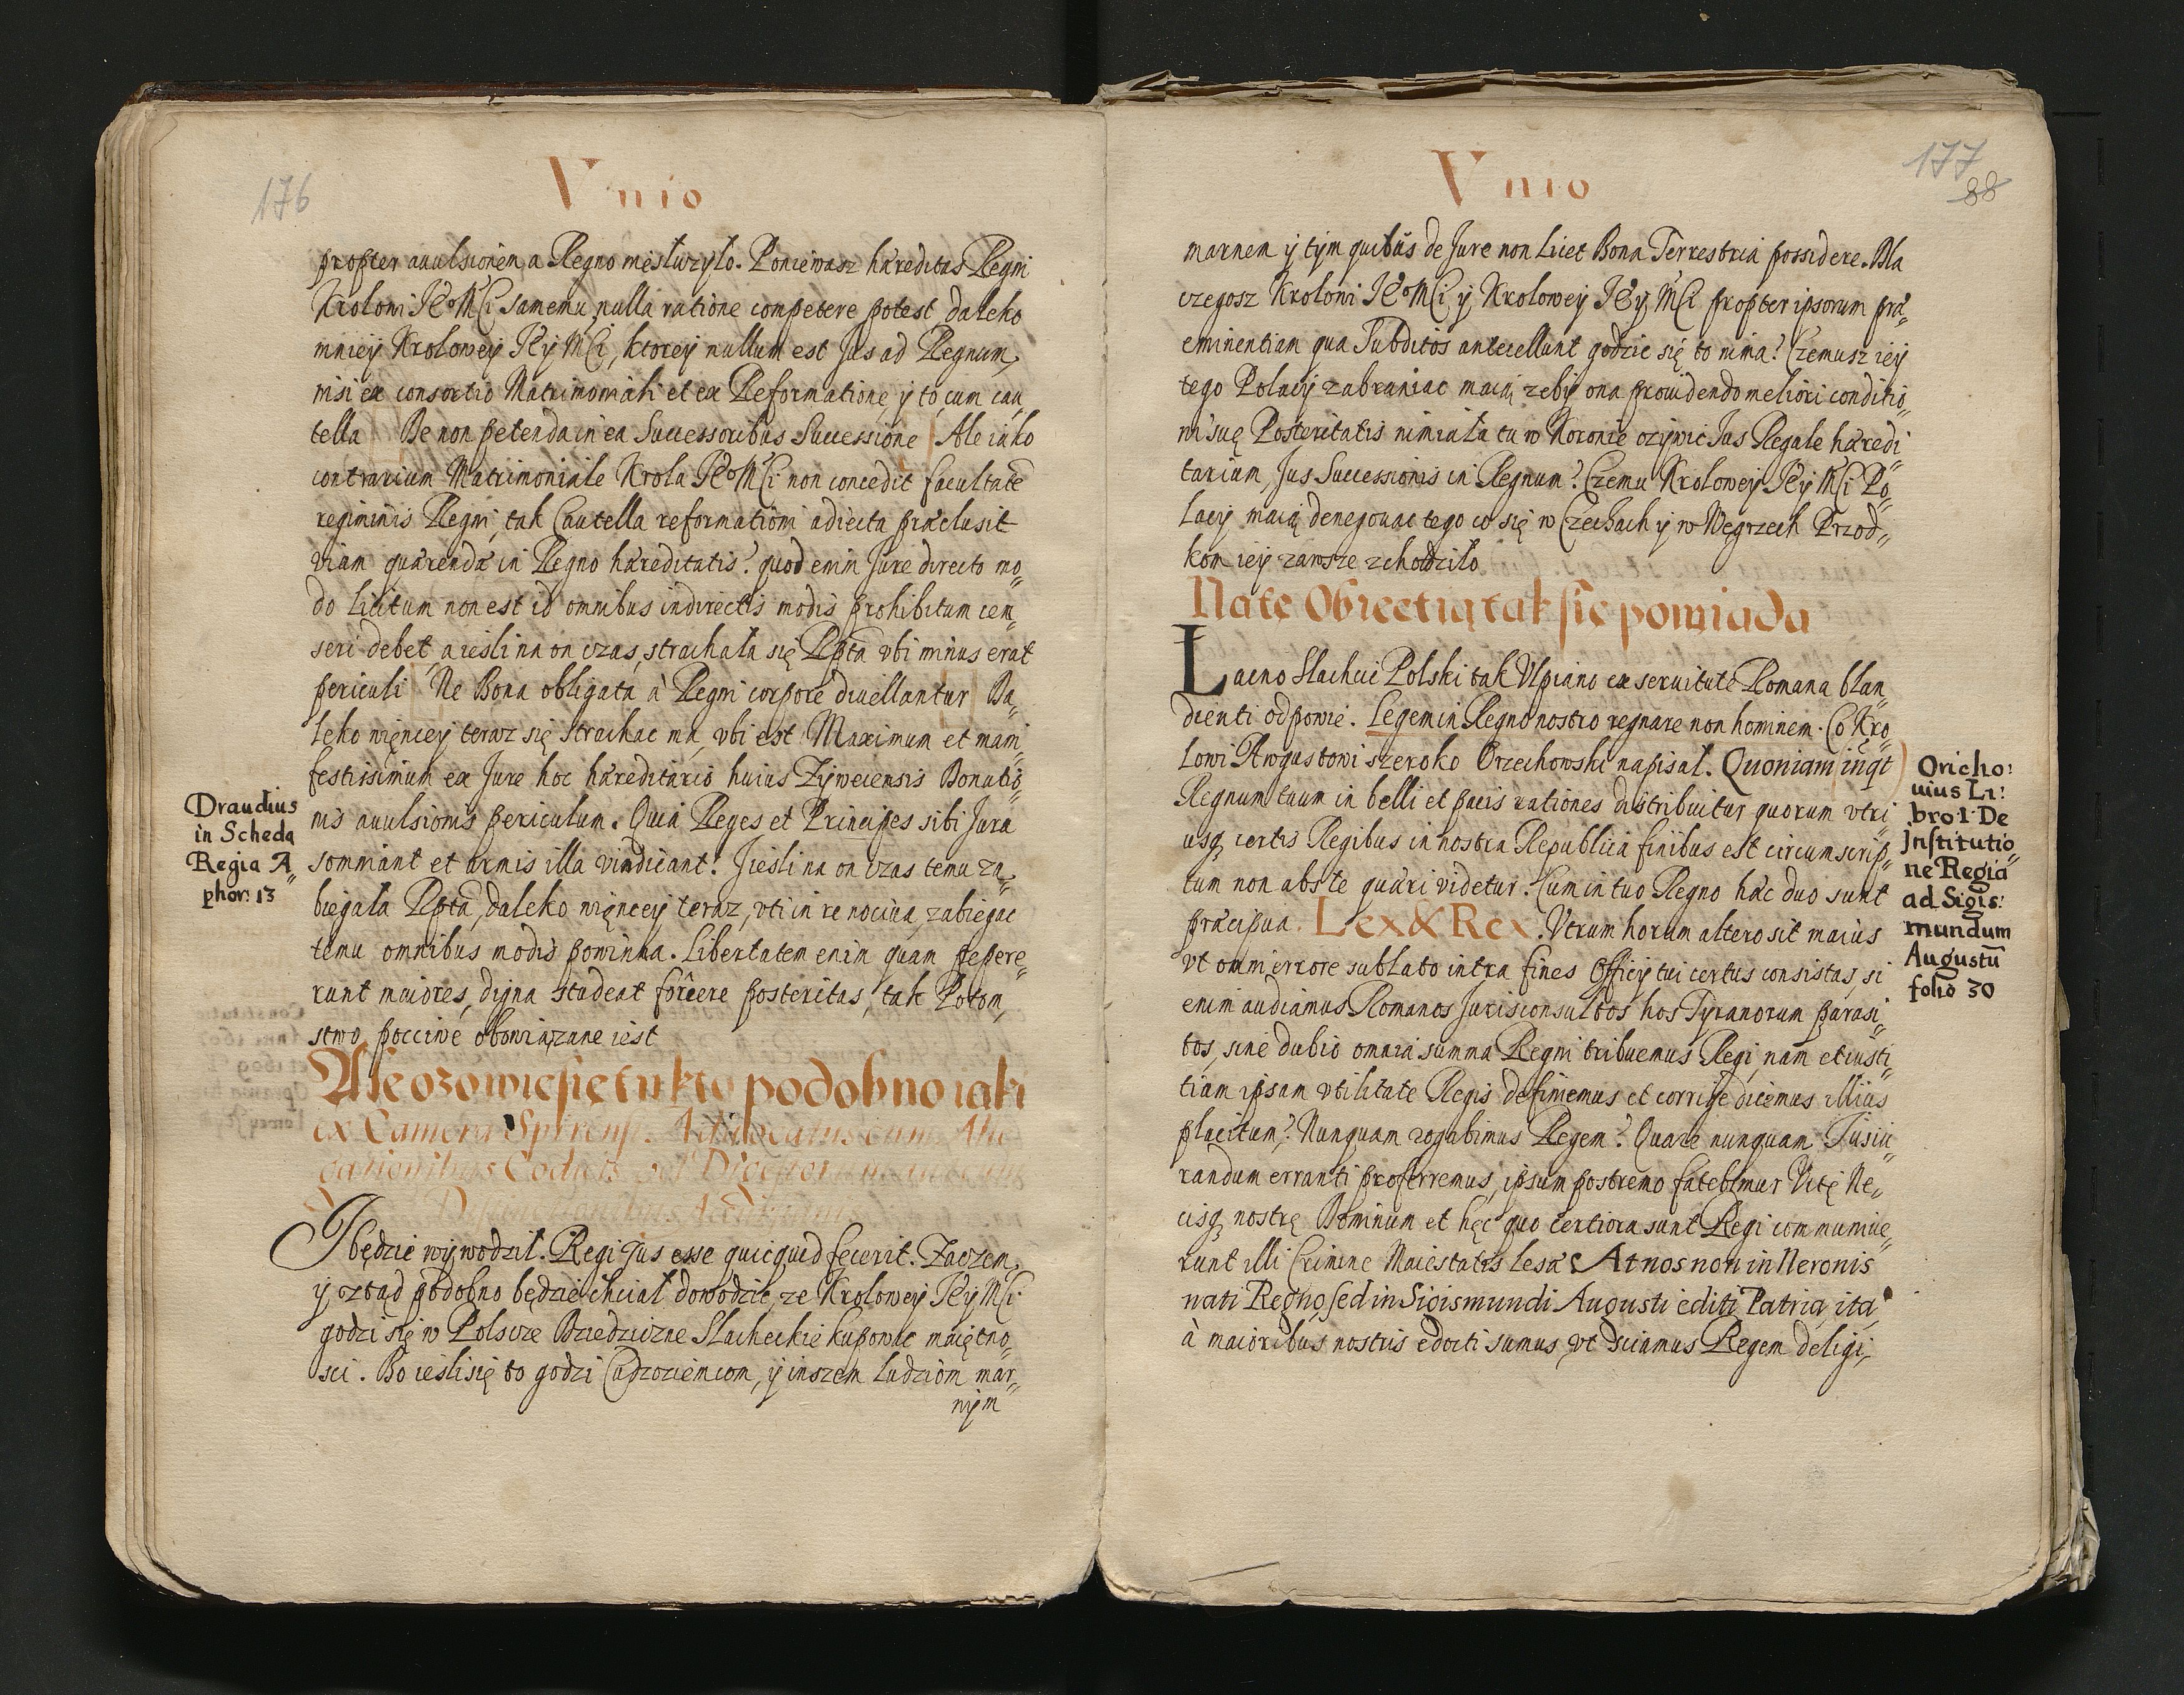 176
Vnio
propter auulsionem a Regno niesłuzyło. Poniewasz hæreditas Regni
Krolowi JE°MCi samemu nulla ratione competere potest daleko
mniey Krolowey JEy MCi, ktorey nullum est Jus ad Regnum,
nisi ex consortio Matrimoniali et ex Reformatione y to cum cau„
tella De non petenda in ea Successoribus Successione Ale iako
contrarium Matrimoniale Krola JE°MCi non concedit facultatē
regiminis Regni, tak Cautella reformationi adiecta præclusit
viam quærendæ in Regno hæreditatis? quod enim Jure directo mo„
do licitum non est id omnibus indirectis modis prohibitum cen„
seri debet, a iesli na on czas strachała się Rpta vbi minus erat
periculi Ne Bona obligata à Regni corpore diuellantur Da„
leko więncey teraz się strachac ma, vbi est Maximum et mani„
festissimum ex Jure hoc hæreditario huius Zÿweciensis Donatio„
nis auulsionis periculum. Quia Reges et Principes sibi Jura
somniant et armis illa vindicant? Jiesli na on czas temu za„
biegała Rpta, daleko więncey teraz, vti in re nociua, zabiegac
temu omnibus modis powinna. Libertatem enim quam pepere„
runt maiores, digna studeat forere posteritas, tak Potom„
stwo pocciwe obowiązane iest
Draudius
in Scheda
Regia A„
phor: 13
Ale ozowie się tu kto podobno iaki
ex Camera Spirensi Aduocatus cum Alle
gationibus Codicis vel
J będzie wywodził. Regi Jus esse quicquid fecerit. Zaczem
y ztąd podobno będzie chciał dowodzic, ze Krolowey JEy MCi
godzi się w Polscze Dziedziczne Slacheckie kupowac maiętno„
sci. Bo iesli się to godzi Cudzoziemcom, ÿ inszem ludziom mar„
nÿm
177
88
Vnio
marnem ÿ tÿm quibus de Jure non licet Bona Terrestria possidere. Dla
czegosz Krolowi JE°MCi ÿ Krolowey JEy MCi propter ipsorum præ„
eminentiam qua Subditos antecellunt godzic się to nima? Czemusz ieÿ
tego Polacÿ zabraniac maią zebÿ ona prouidendo meliori conditio„
ni suę Posteritatis nimiała tu w Koronie ozÿwic Jus Regale hæredi„
tarium, Jus Successionis in Regnum? Czemu Krolowey JEy MCi Po„
lacÿ maią denegowac tego co się w Czechach ÿ w Węgrzech Przod„
kom ieÿ zawsze zchodziło
Na te Obiectią tak się powiada
Lacno Slachcic Polski tak Vlpiano ex seruitute Romana blan„
dienti odpowie. Legem in Regno nostro regnare non hominem. Co Kro„
lowi Awgustowi szeroko Orzechowski napisał. Quoniam inqt
Regnum tuum in belli et pacis rationes distribuitur quorum vtri„
usq certis Regibus in nostra Republica finibus est circumscrip„
tum non abs te quæri videtur. Cum in tuo Regno hæc duo sunt
præcipua. Lex & Rex. Vtrum horum altero sit maius
vt omni errore sublato intra fines Officÿ tui certus consistas, si
enim audiamus Romanos Jurisconsultos hos Tyranorum parasi„
tos, sine dubio omnia summa Regni tribuemus Regi, nam et iusti„
tiam ipsam vtilitate Regis definiemus et corrige dicemus illius
placitum? Nunquam rogabimus Regem? Quare nunquam Jusiu„
randum erranti proferremus, ipsum postremo fatebimur Vitę Ne„
cisq nostrę Dominum et hęc quo certiora sunt Regi communiue„
runt illi Crimine Maiestatis lesæ At nos non in Neronis
nati Regno, sed in Sigismundi Augusti editi Patria, ita
à maioribus nostris edocti sumus, vt sciamus Regem deligi,
Oricho:
uius Li:
bro 1 De
Institutio„
ne Regia
ad Sigis:
mundum
Augustū
folio 30